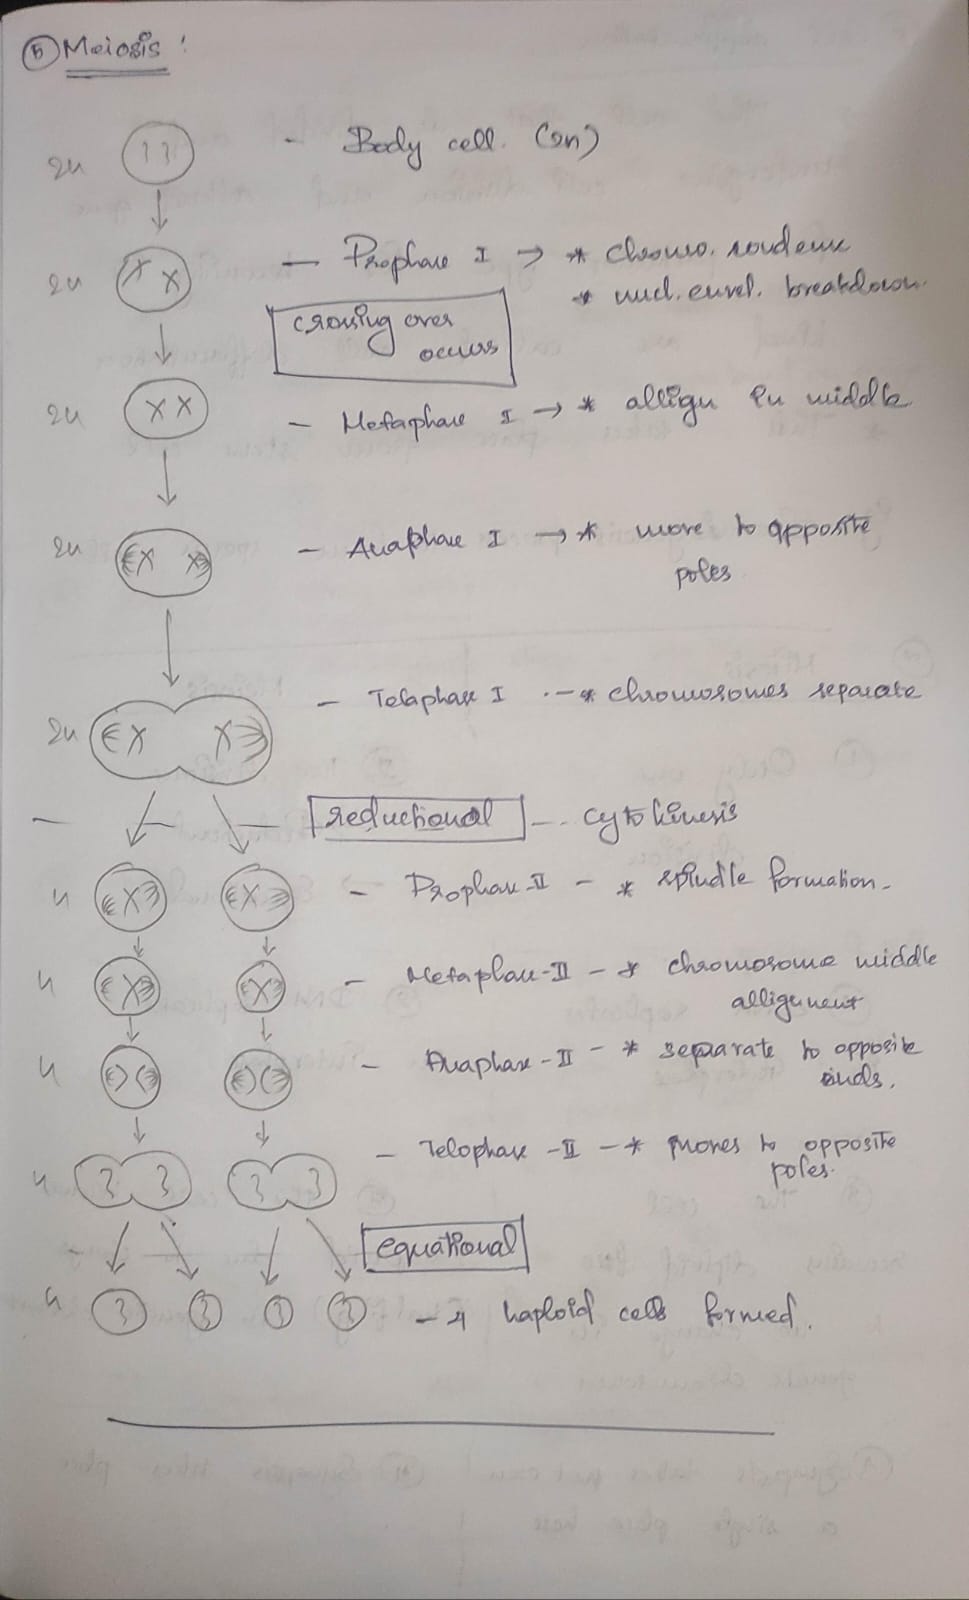 5 Meiosis :
2n - Body cell. (2n)
2n - Prophase I → * chromo. condense
* nucl. envel. breakdown.
crossing over
occurs
2n - Metaphase I → * allign in middle
2n - Anaphase I → * move to opposite
poles
2n - Telophase I - * chromosomes separate
reductional - cytokinesis
n - Prophase-II - * spindle formation.
n - Metaphase-II - * chromosome middle
allignment
n - Anaphase-II - * separate to opposite
ends.
n - Telophase-II - * moves to opposite
poles.
equational
n - 4 haploid cells formed.